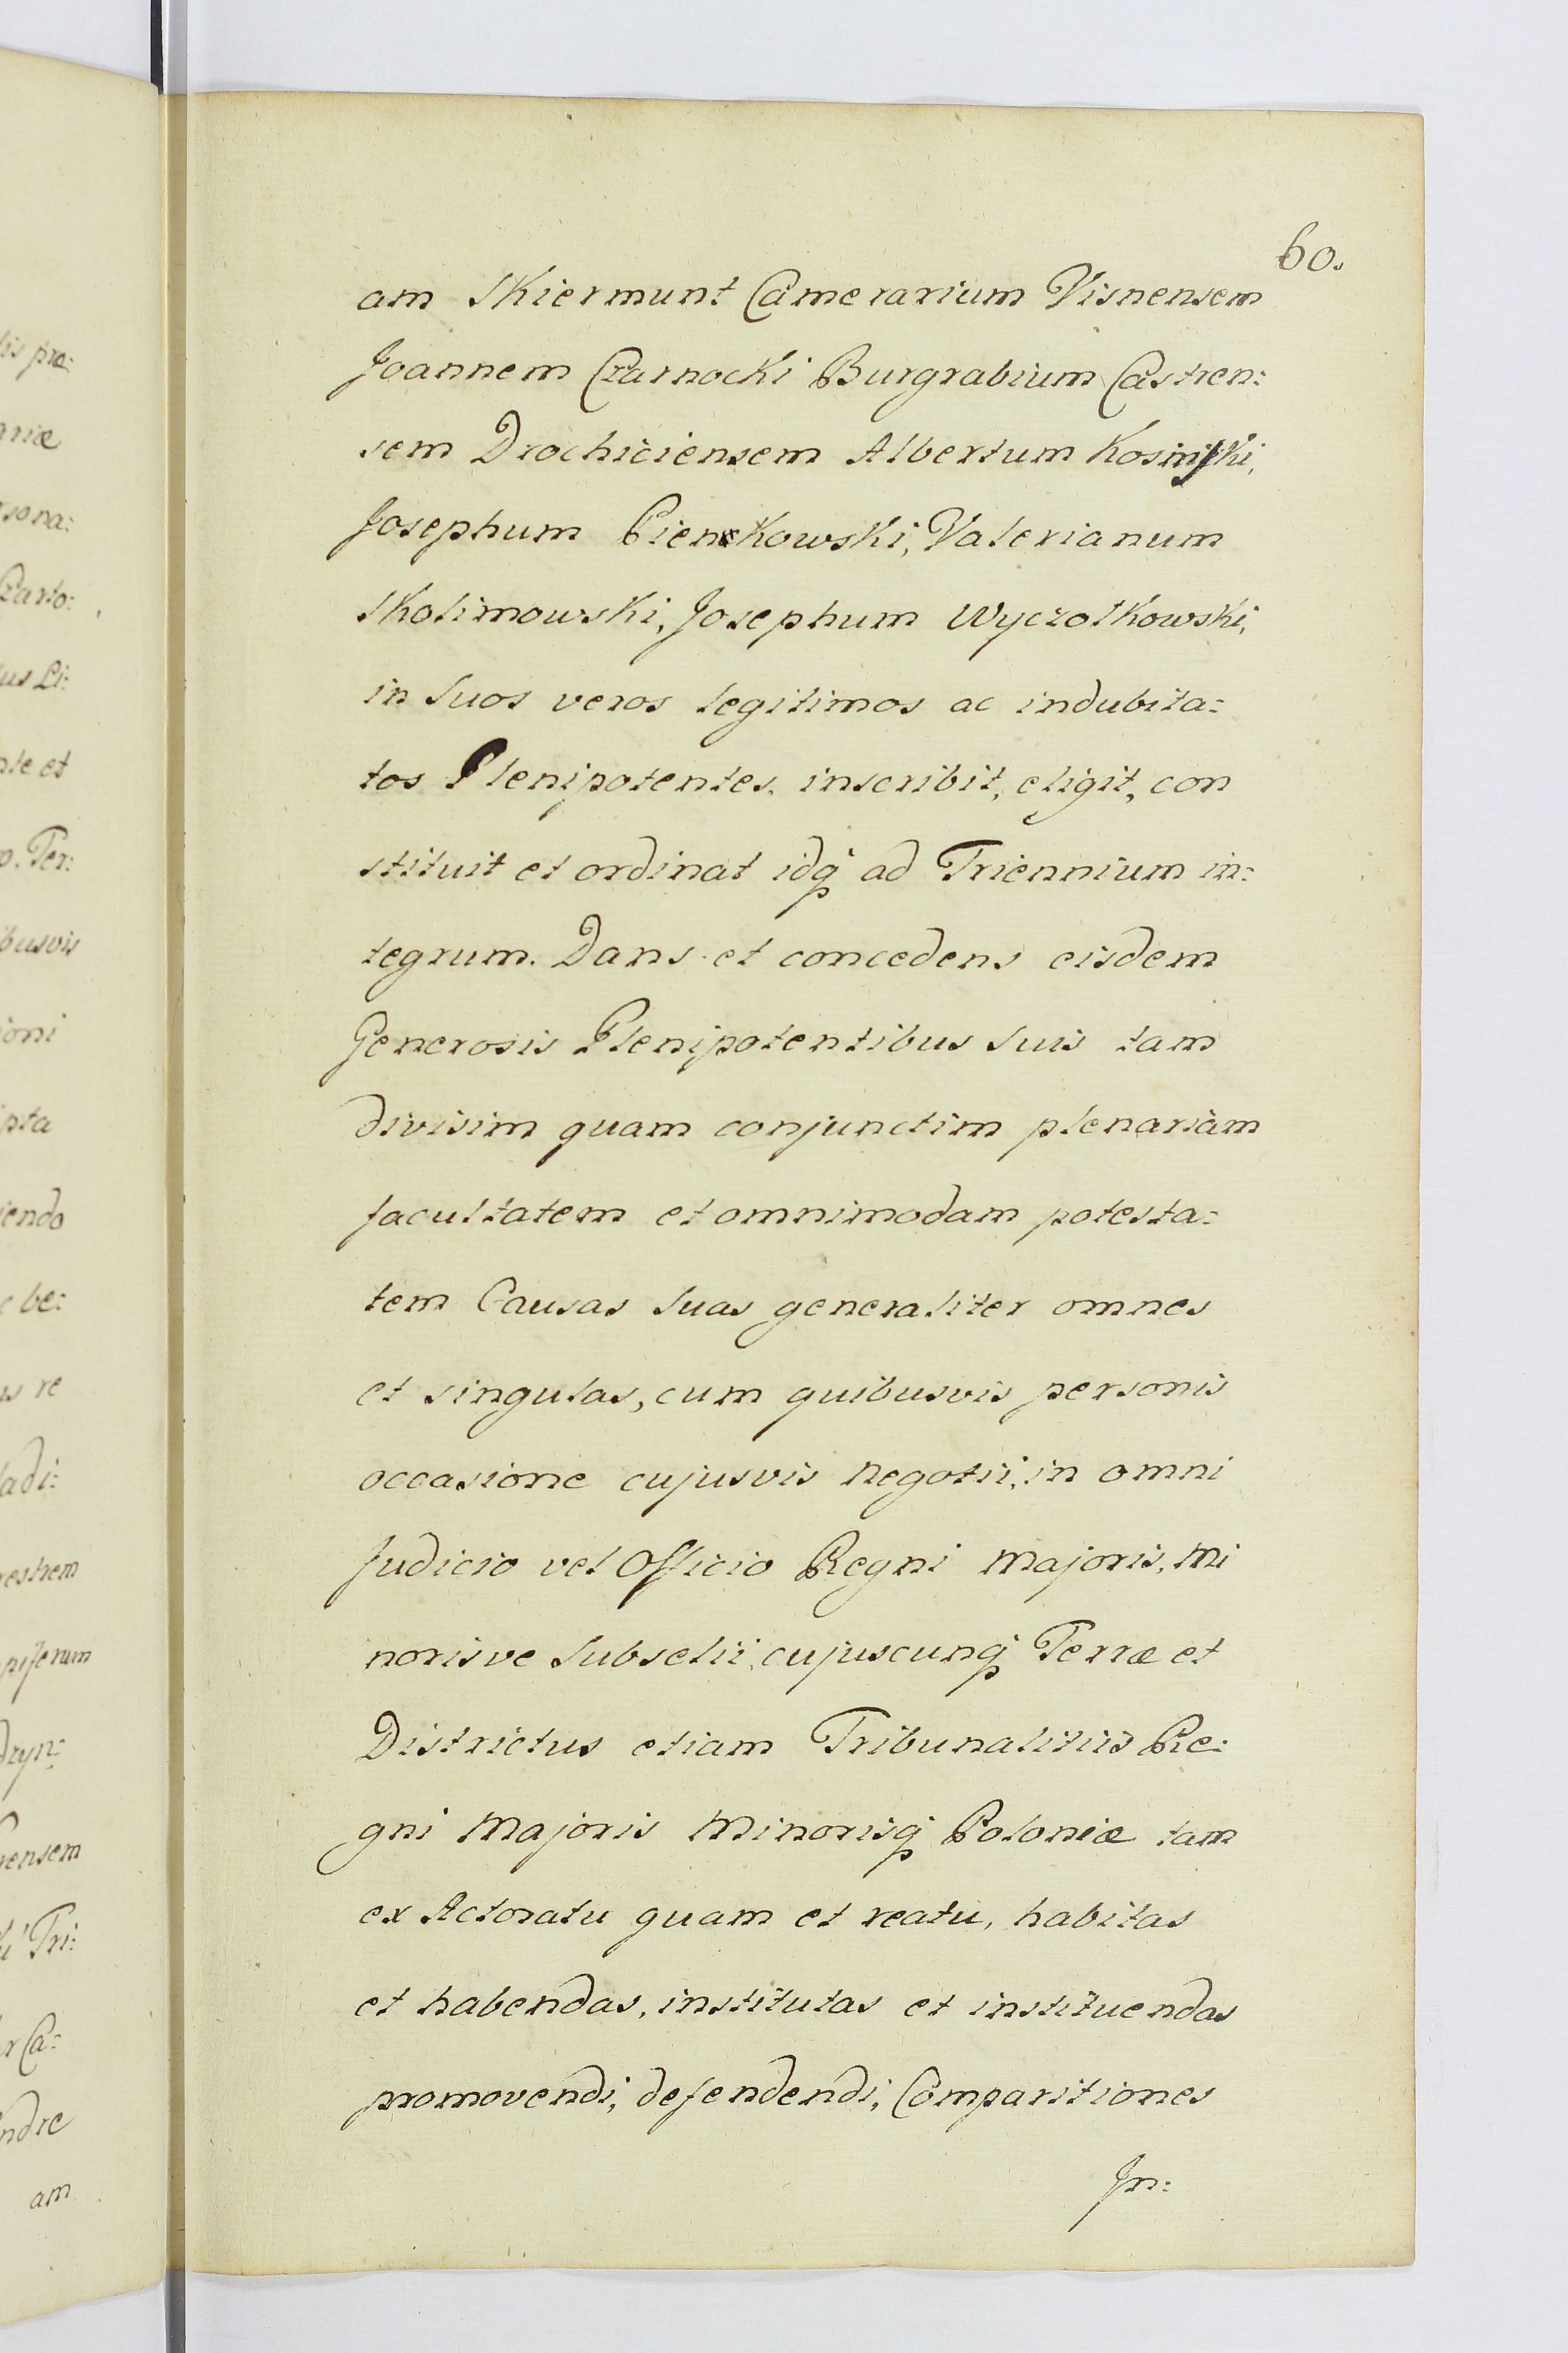 60.
am Skiermunt Camerarium Visnensem
Joannem Czarnocki Burgrabium Castren:
sem Drochiciensem Albertum Kosinski,
Josephum Pienkowski, Valerianum
Skolimowski, Josephum Wyczolkowski,
in Suos veros legitimos ac indubita:
tos Plenipotentes, inscribit, eligit, con
stituit et ordinat idq̃ ad Triennium in:
tegrum. Dans et concedens eisdem
Generosis Plenipotentibus Suis tam
divisim quam conjunctim plenariam
facultatem et omnimodam potesta:
tem Causas Suas generaliter omnes
et singulas, cum quibusvis personis
occasione cujusvis Negotii, in omni
Judicio vel Officio Regni Majoris, Mi
norisve Subselii, cujuscunq̃ Terræ et
Districtus etiam Tribunalitiis Re:
gni Majoris Minorisq̃ Poloniæ tam
ex Actoratu quam et reatu, habitas
et habendas, institutas et instituendas
promovendi, defendendi, Comparitiones
Jn: